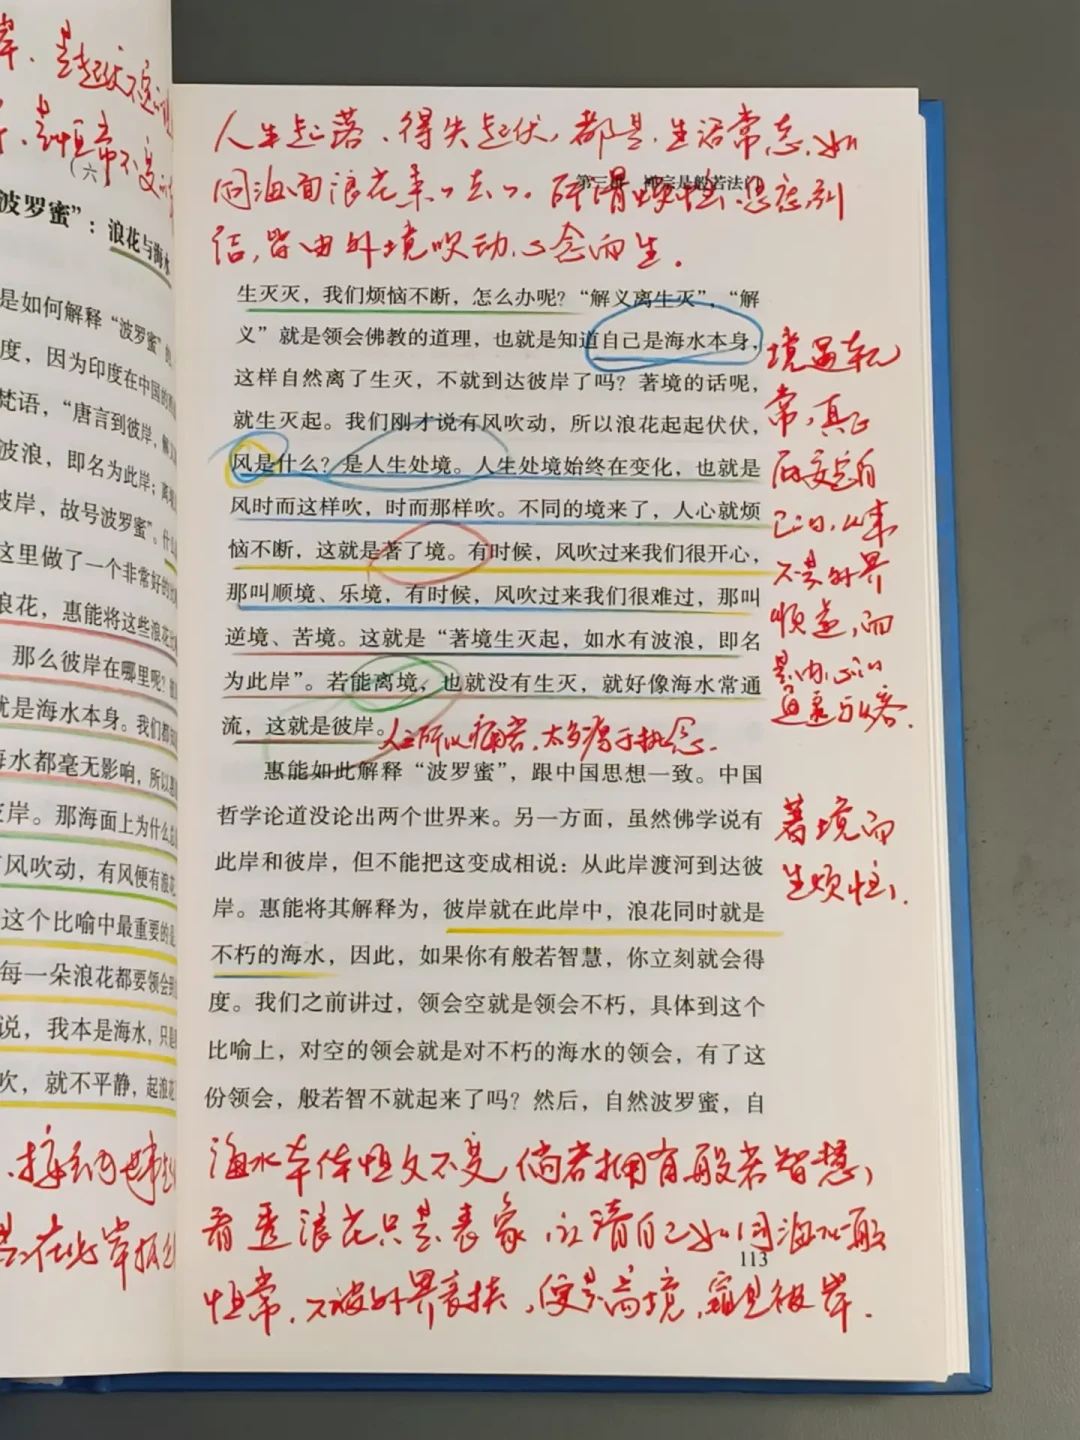 岸、是起伏不定
恒常不变
（六）
波罗蜜”：浪花与海水
是如何解释“波罗蜜”
度，因为印度在中国的
梵语，“唐言到彼岸，解义
波浪，即名为此岸；离境
彼岸，故号波罗蜜”。什么
这里做了一个非常好的
浪花，惠能将这些浪花
那么彼岸在哪里呢？
就是海水本身。我们都知
海水都毫无影响，所以
岸。那海面上为什么总
有风吹动，有风便有浪花
这个比喻中最重要的是
每一朵浪花都要领会到
说，我本是海水，只是
吹，就不平静，起浪花
人生起落、得失起伏，都是生活常态，如
第三讲 禅宗是般若法门
同海面浪花来来去去。所谓烦恼、悲欢别
皆由外境吹动心念而生。
生灭灭，我们烦恼不断，怎么办呢？“解义离生灭”，“解
义”就是领会佛教的道理，也就是知道自己是海水本身，
这样自然离了生灭，不就到达彼岸了吗？著境的话呢，
就生灭起。我们刚才说有风吹动，所以浪花起起伏伏，
风是什么？是人生处境。人生处境始终在变化，也就是
风时而这样吹，时而那样吹。不同的境来了，人心就烦
恼不断，这就是著了境。有时候，风吹过来我们很开心，
那叫顺境、乐境，有时候，风吹过来我们很难过，那叫
逆境、苦境。这就是“著境生灭起，如水有波浪，即名
为此岸”。若能离境，也就没有生灭，就好像海水常通
流，这就是彼岸。
人之所以痛苦，太多属于执念。
惠能如此解释“波罗蜜”，跟中国思想一致。中国
哲学论道没论出两个世界来。另一方面，虽然佛学说有
此岸和彼岸，但不能把这变成相说：从此岸渡河到达彼
岸。惠能将其解释为，彼岸就在此岸中，浪花同时就是
不朽的海水，因此，如果你有般若智慧，你立刻就会得
度。我们之前讲过，领会空就是领会不朽，具体到这个
比喻上，对空的领会就是对不朽的海水的领会，有了这
份领会，般若智不就起来了吗？然后，自然波罗蜜，自
境遇无
常，真正
的安定自
在，从来
不是外界
顺逆，而
是内心的
通透与从容。
著境而
生烦恼。
海水本体恒久不变，倘若拥有般若智慧，
看透浪花只是表象，认清自己如同海水一般
恒常，不被外界裹挟，便是离境，窥见彼岸。
113